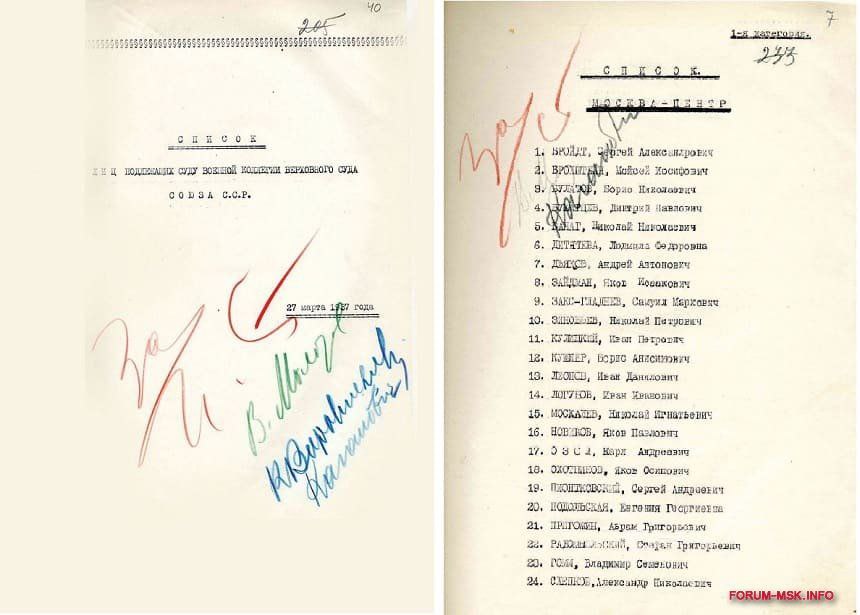 40
205
§§§§§§§§§§§§§§§§§§§§§§§§§§§§§§§§§§§§§§§§§§§§§§§§
СПИСОК
ЛИЦ ПОДЛЕЖАЩИХ СУДУ ВОЕННОЙ КОЛЛЕГИИ ВЕРХОВНОГО СУДА
СОЮЗА С.С.Р.
27 марта 1937 года
За
И. С
В. Молотов
К Ворошилов
Каганович
7
1-я категория.
233
СПИСОК.
МОСКВА-ЦЕНТР
За С
Каганович
1. БРОЙДТ, Сергей Александрович
2. Моисей Иосифович
3. БУЛАТОВ, Борис Николаевич
4. Дмитрий Павлович
5. КАНАГ, Николай Николаевич
6. ДИТЯТЕВА, Людмила Федоровна
7. ДЬЯКОВ, Андрей Антонович
8. ЗАЙДМАН, Яков Исаакович
9. ЗАКС-ГЛАДНЕВ, Самуил Маркович
10. ЗИНОВЬЕВ, Николай Петрович
11. КУЛИЦКИЙ, Иван Петрович
12. КУШНЕР, Борис Анисимович
13. ЛЕОНОВ, Иван Данилович
14. ЛОГУНОВ, Иван Иванович
15. МОСКАЛЕВ, Николай Игнатьевич
16. НОВИКОВ, Яков Павлович
17. ОЗОЛ, Карл Андреевич
18. ОХОТНИКОВ, Яков Осипович
19. ПИОНТКОВСКИЙ, Сергей Андреевич
20. ПОДОЛЬСКАЯ, Евгения Георгиевна
21. ПРИГОЖИН, Абрам Григорьевич
22. Стефан Григорьевич
23. Владимир Семенович
24. СЛЕПКОВ, Александр Николаевич
FORUM-MSK.INFO